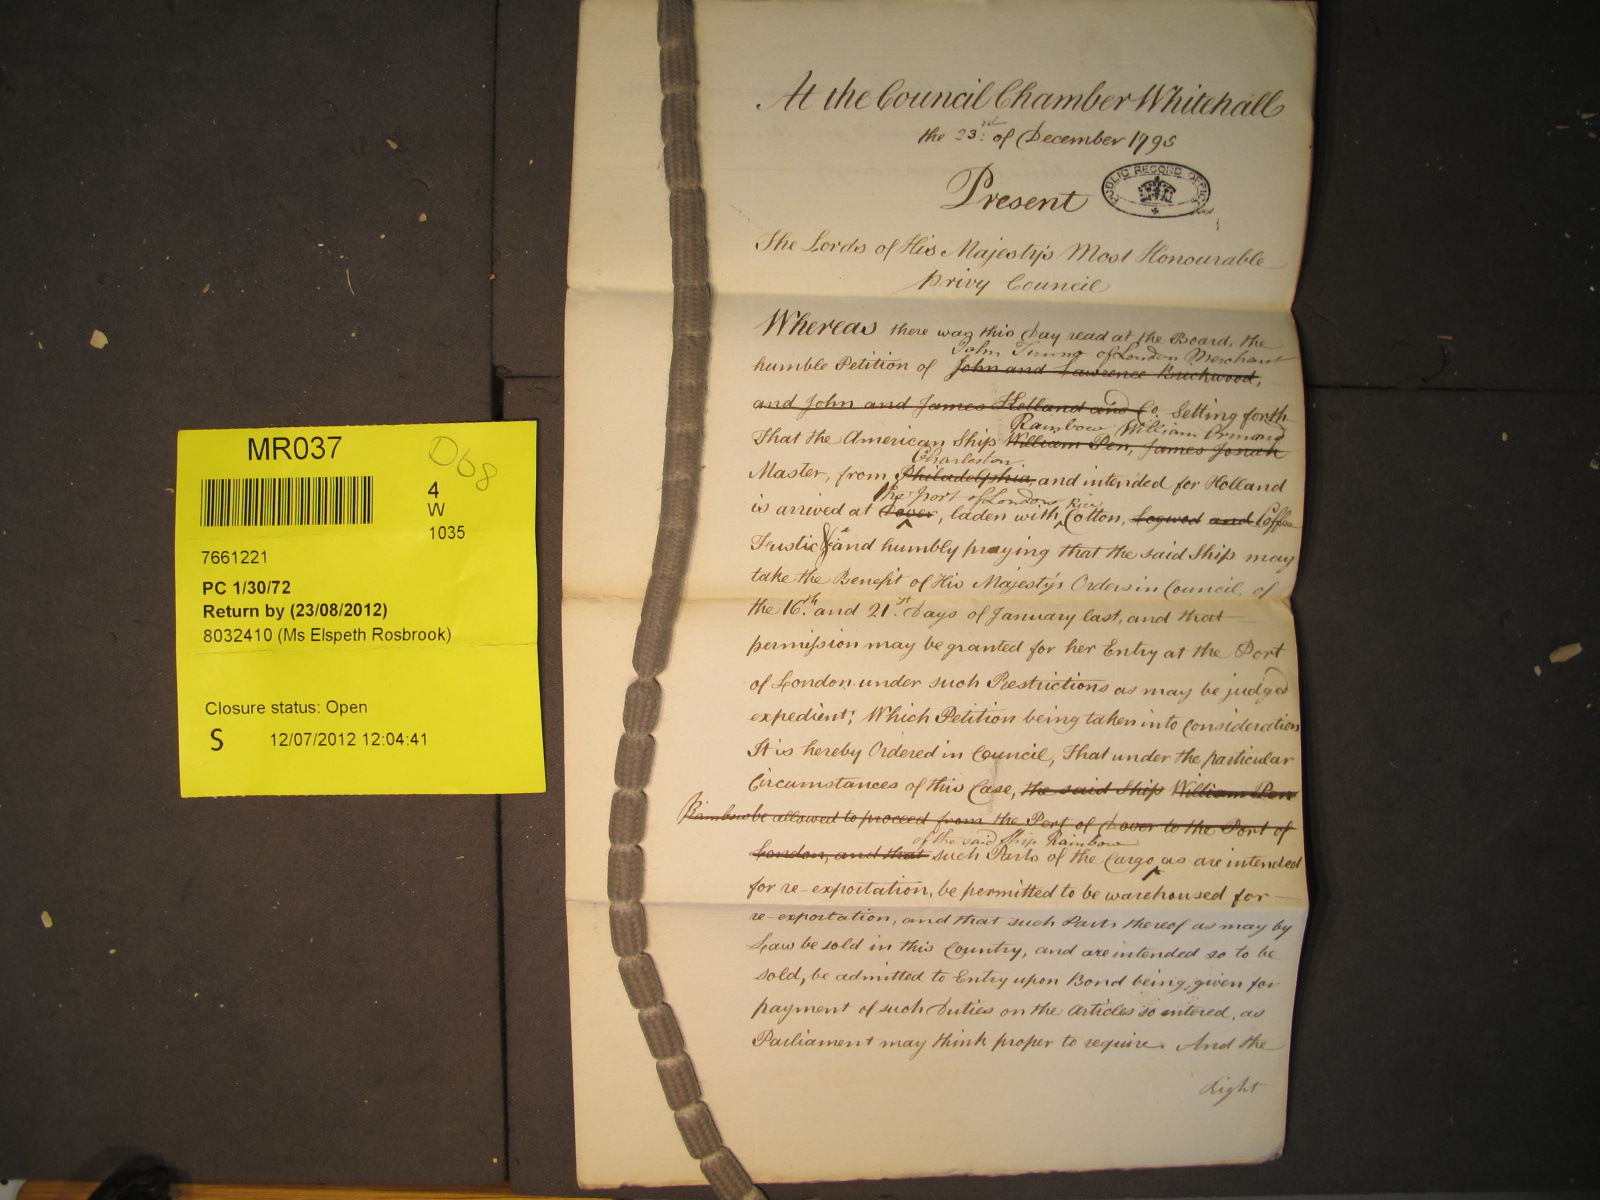 MR037
D68
4
W
1035
7661221
PC 1/30/72
Return by (23/08/2012)
8032410 (Ms Elspeth Rosbrook)
Closure status: Open
S 12/07/2012 12:04:41
At the Council Chamber Whitehall
the 23.rd of December 1795
Present
PUBLIC RECORD OFFICE
The Lords of His Majesty's Most Honourable
Privy Council
Whereas there was this Day read at the Board, the
John of London Merchant
humble Petition of John and Lawrence Brickwood,
and John and James Holland and Co. Setting forth
Rainbow William Ormand
That the American Ship William Pen, James Josiah
Charleston
Master, from Philadelphia, and intended for Holland
the Port of London Rice
is arrived at Dover, laden with Cotton, Logwod and Coffee
Fustic & and humbly praying that the said Ship may
take the Benefit of His Majesty's Orders in Council, of
the 16.th and 21.st Days of January last, and that
permission may be granted for her Entry at the Port
of London under such Restrictions as may be judged
expedient; Which Petition being taken into Consideration
It is hereby Ordered in Council, That under the particular
Circumstances of this Case, the said Ship William Pen
Rainbow be allowed to proceed from the Port of Dover to the Port of
of the said Ship Rainbow
London, and that such Parts of the Cargo as are intended
for re-exportation, be permitted to be warehoused for
re-exportation, and that such Parts thereof as may by
Law be sold in this Country, and are intended so to be
sold, be admitted to Entry upon Bond being given for
payment of such Duties on the Articles so entered, as
Parliament may think proper to require. And the
Right